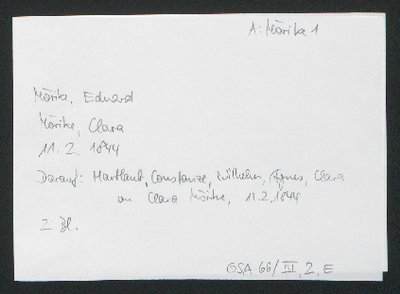 A: Mörike 1
Mörike, Eduard
Mörike, Clara
11. 2. 1844
Darauf: Hartlaub, Constanze, Wilhelm, Agnes, Clara
an Clara Mörike, 11.2.1844
2 Bl.
GSA 66/III, 2, E